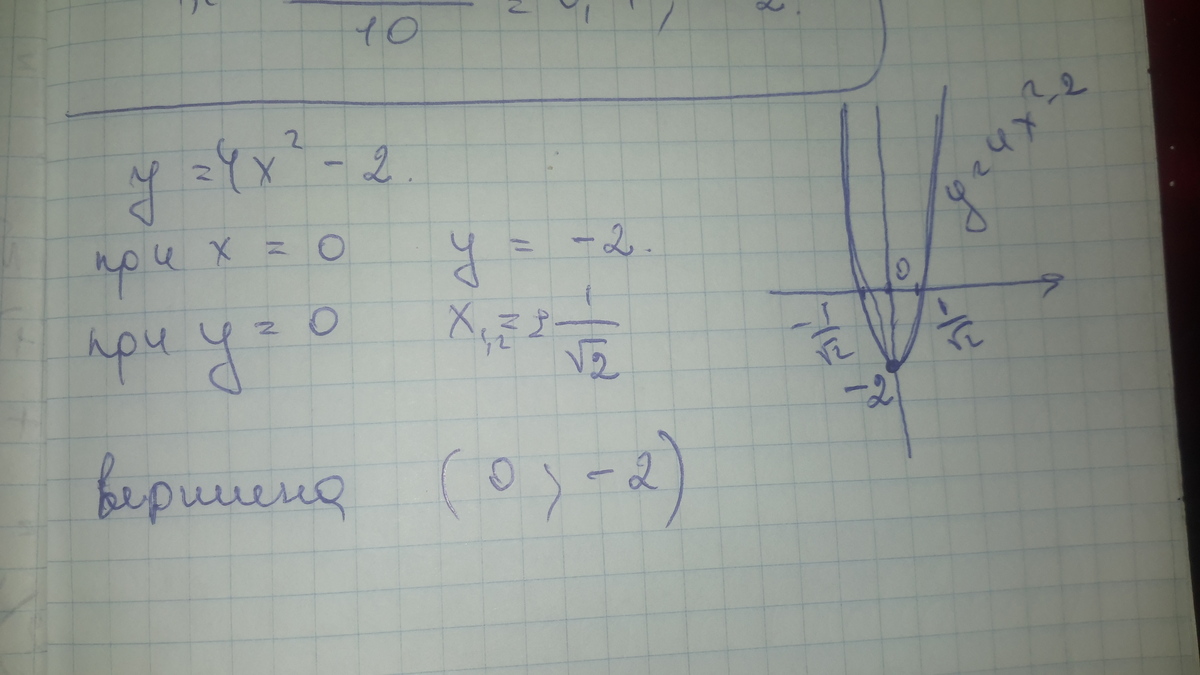 10
y = 4x² - 2.
при x = 0 y = -2.
при y = 0 x₁,₂ = ± 1/√2
вершина (0; -2)
y = 4x² - 2
0
-1/√2 1/√2
-2